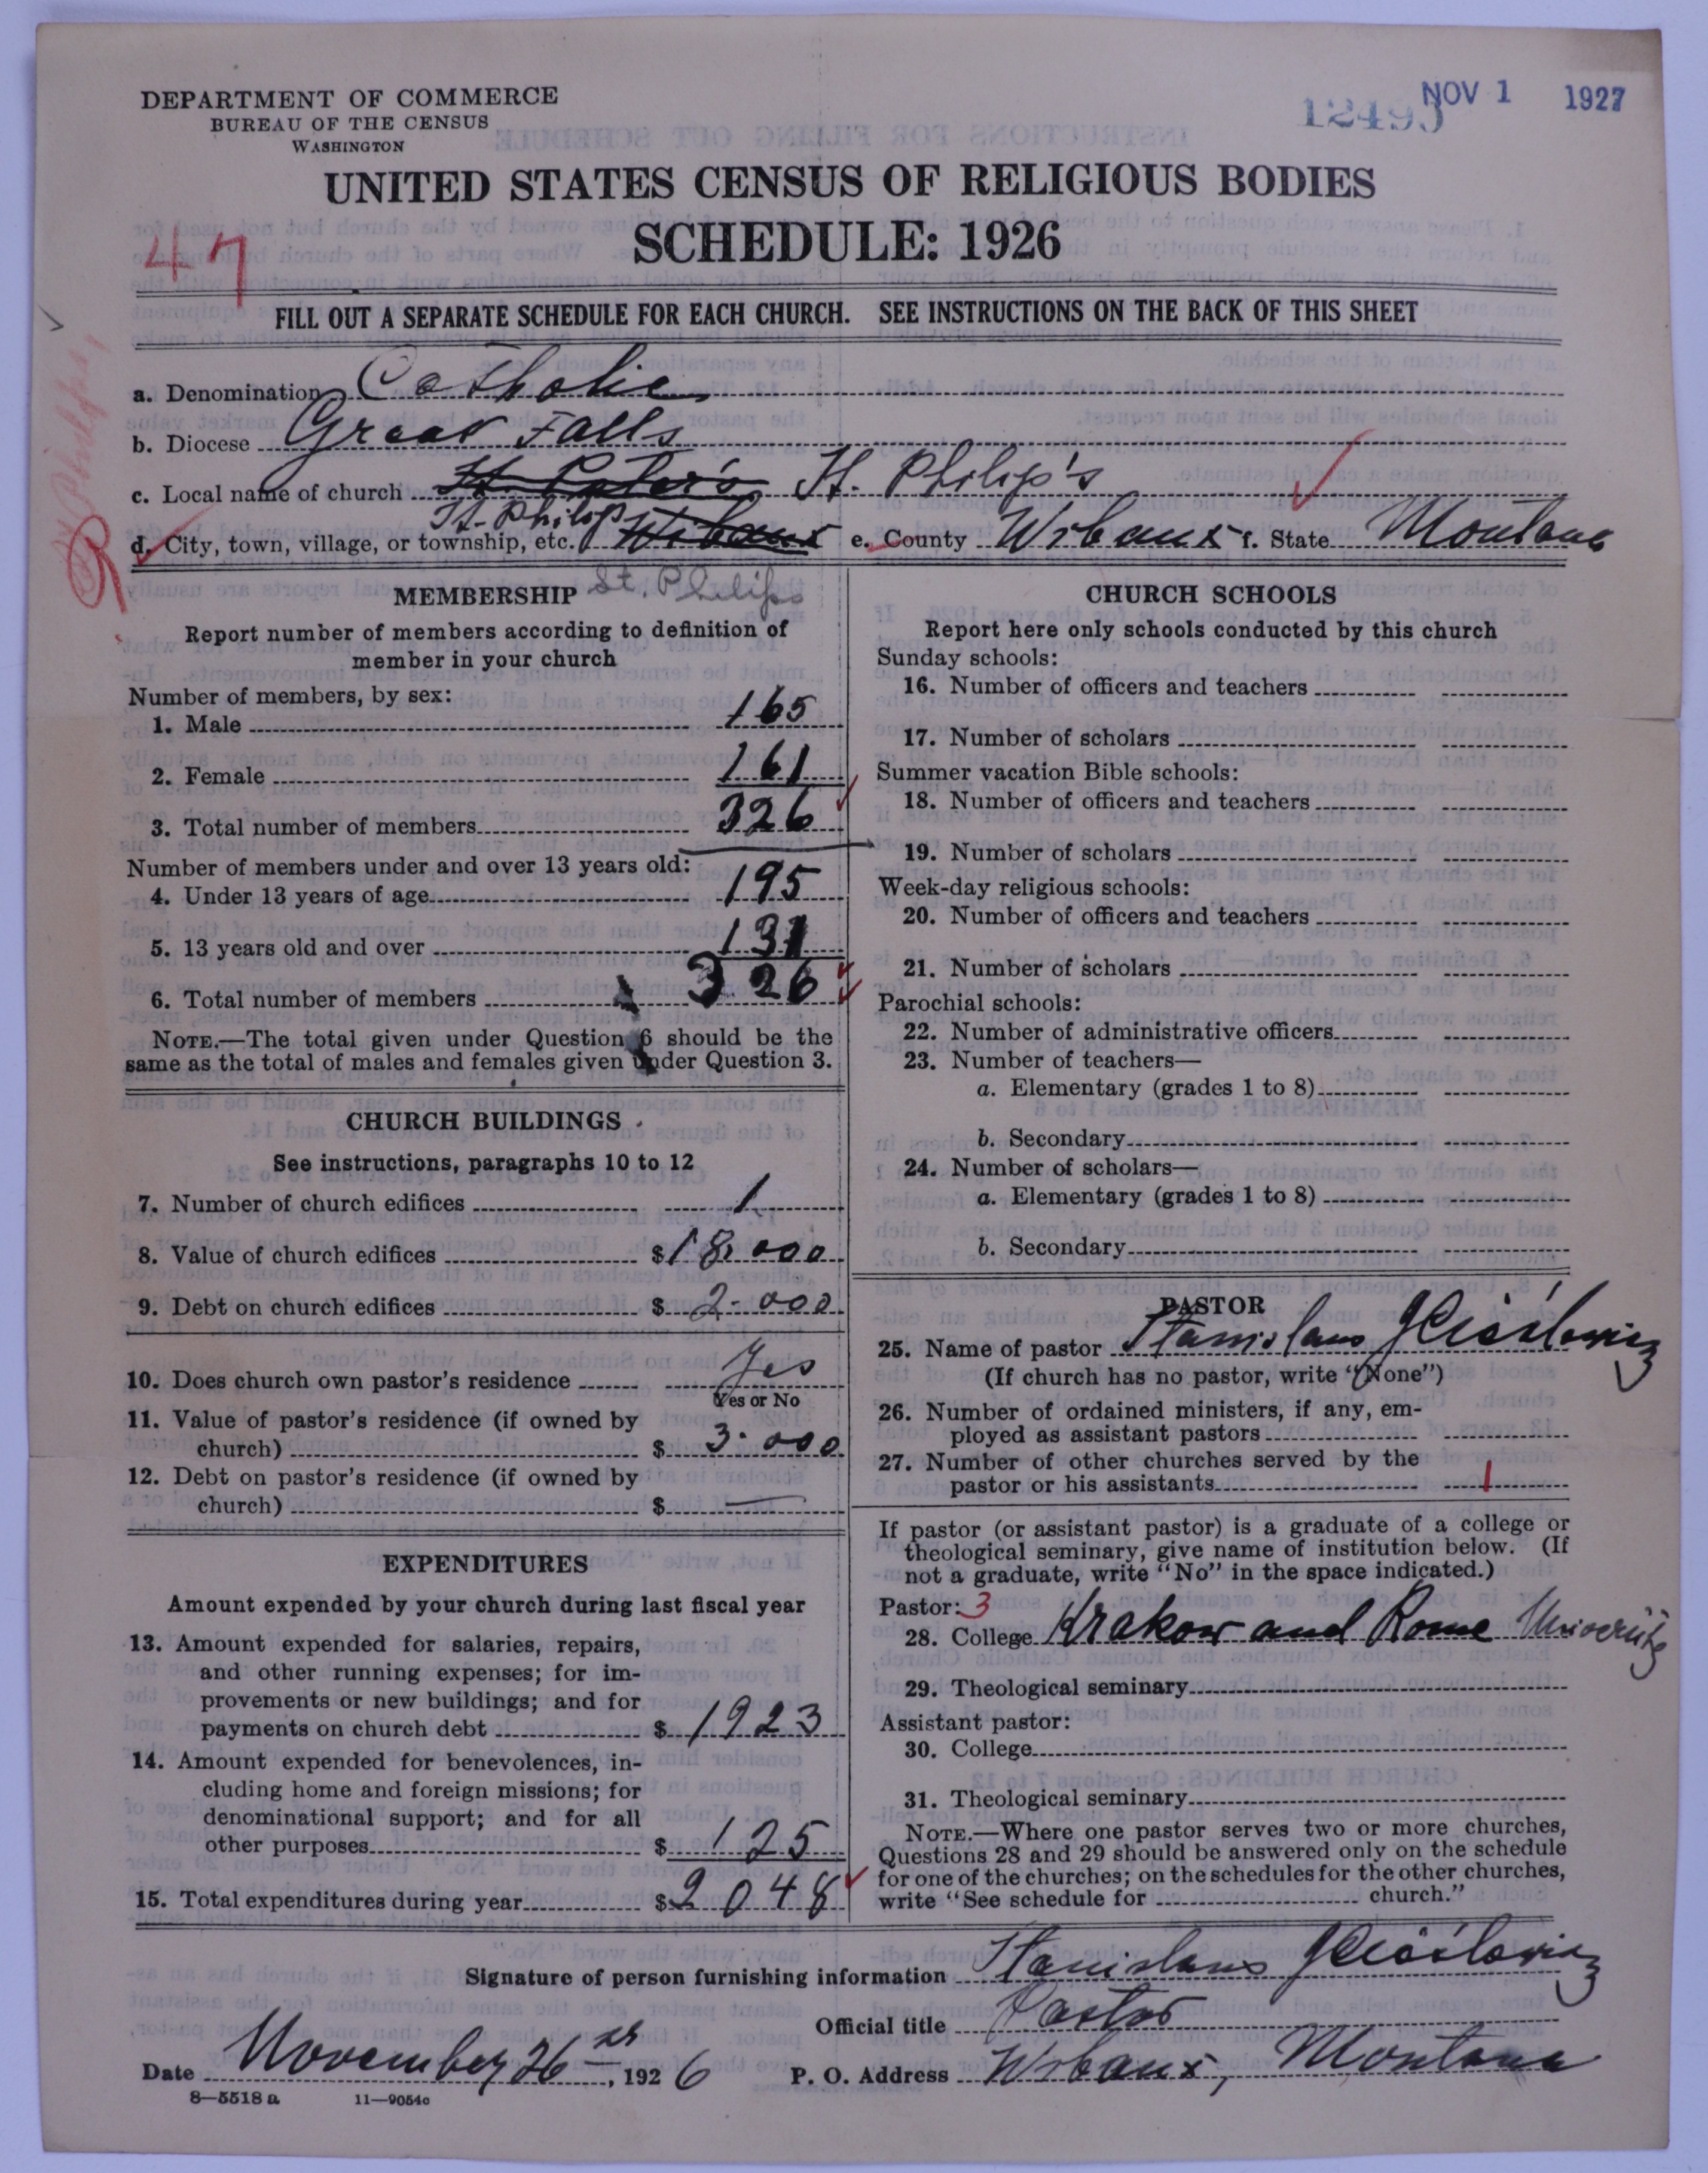 DEPARTMENT OF COMMERCE
BUREAU OF THE CENSUS
WASHINGTON
12495 NOV 1 1927
UNITED STATES CENSUS OF RELIGIOUS BODIES
SCHEDULE: 1926
47
FILL OUT A SEPARATE SCHEDULE FOR EACH CHURCH. SEE INSTRUCTIONS ON THE BACK OF THIS SHEET
a. Denomination Catholic
b. Diocese Great Falls
c. Local name of church St. Peter's St. Philip's
d. City, town, village, or township, etc. St. Philip Wibaux e. County Wibaux f. State Montana
MEMBERSHIP St. Philips
Report number of members according to definition of
member in your church
Number of members, by sex:
1. Male 165
2. Female 161
3. Total number of members 326
Number of members under and over 13 years old:
4. Under 13 years of age 195
5. 13 years old and over 131
6. Total number of members 326
NOTE.—The total given under Question 6 should be the
same as the total of males and females given under Question 3.
CHURCH BUILDINGS
See instructions, paragraphs 10 to 12
7. Number of church edifices 1
8. Value of church edifices $18.000
9. Debt on church edifices $ 2.000
10. Does church own pastor's residence Yes
Yes or No
11. Value of pastor's residence (if owned by
church) $ 3.000
12. Debt on pastor's residence (if owned by
church) $ —
EXPENDITURES
Amount expended by your church during last fiscal year
13. Amount expended for salaries, repairs,
and other running expenses; for im-
provements or new buildings; and for
payments on church debt $ 1923
14. Amount expended for benevolences, in-
cluding home and foreign missions; for
denominational support; and for all
other purposes $ 125
15. Total expenditures during year $2048
CHURCH SCHOOLS
Report here only schools conducted by this church
Sunday schools:
16. Number of officers and teachers
17. Number of scholars
Summer vacation Bible schools:
18. Number of officers and teachers
19. Number of scholars
Week-day religious schools:
20. Number of officers and teachers
21. Number of scholars
Parochial schools:
22. Number of administrative officers
23. Number of teachers—
a. Elementary (grades 1 to 8)
b. Secondary
24. Number of scholars—
a. Elementary (grades 1 to 8)
b. Secondary
PASTOR
25. Name of pastor Stanislaus
(If church has no pastor, write "None")
26. Number of ordained ministers, if any, em-
ployed as assistant pastors
27. Number of other churches served by the
pastor or his assistants 1
If pastor (or assistant pastor) is a graduate of a college or
theological seminary, give name of institution below. (If
not a graduate, write "No" in the space indicated.)
Pastor: 3
28. College Krakow and Rome University
29. Theological seminary
Assistant pastor:
30. College
31. Theological seminary
NOTE.—Where one pastor serves two or more churches,
Questions 28 and 29 should be answered only on the schedule
for one of the churches; on the schedules for the other churches,
write "See schedule for church."
Signature of person furnishing information Stanislaus
Official title Pastor
Date November 26, 1926 P. O. Address Wibaux, Montana
8—5518 a 11—9054c